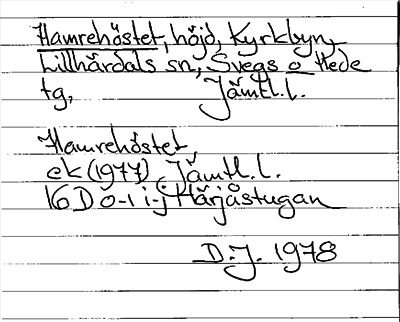 Hamrehöstet, höjd, Kyrkbyn,
Lillhärdals sn, Svegs o Hede
tg, Jämtl.l.
Hamrehöstet,
ek (1977), Jämtl.l.
16D 0-1 i-j Härjåstugan
D.J. 1978